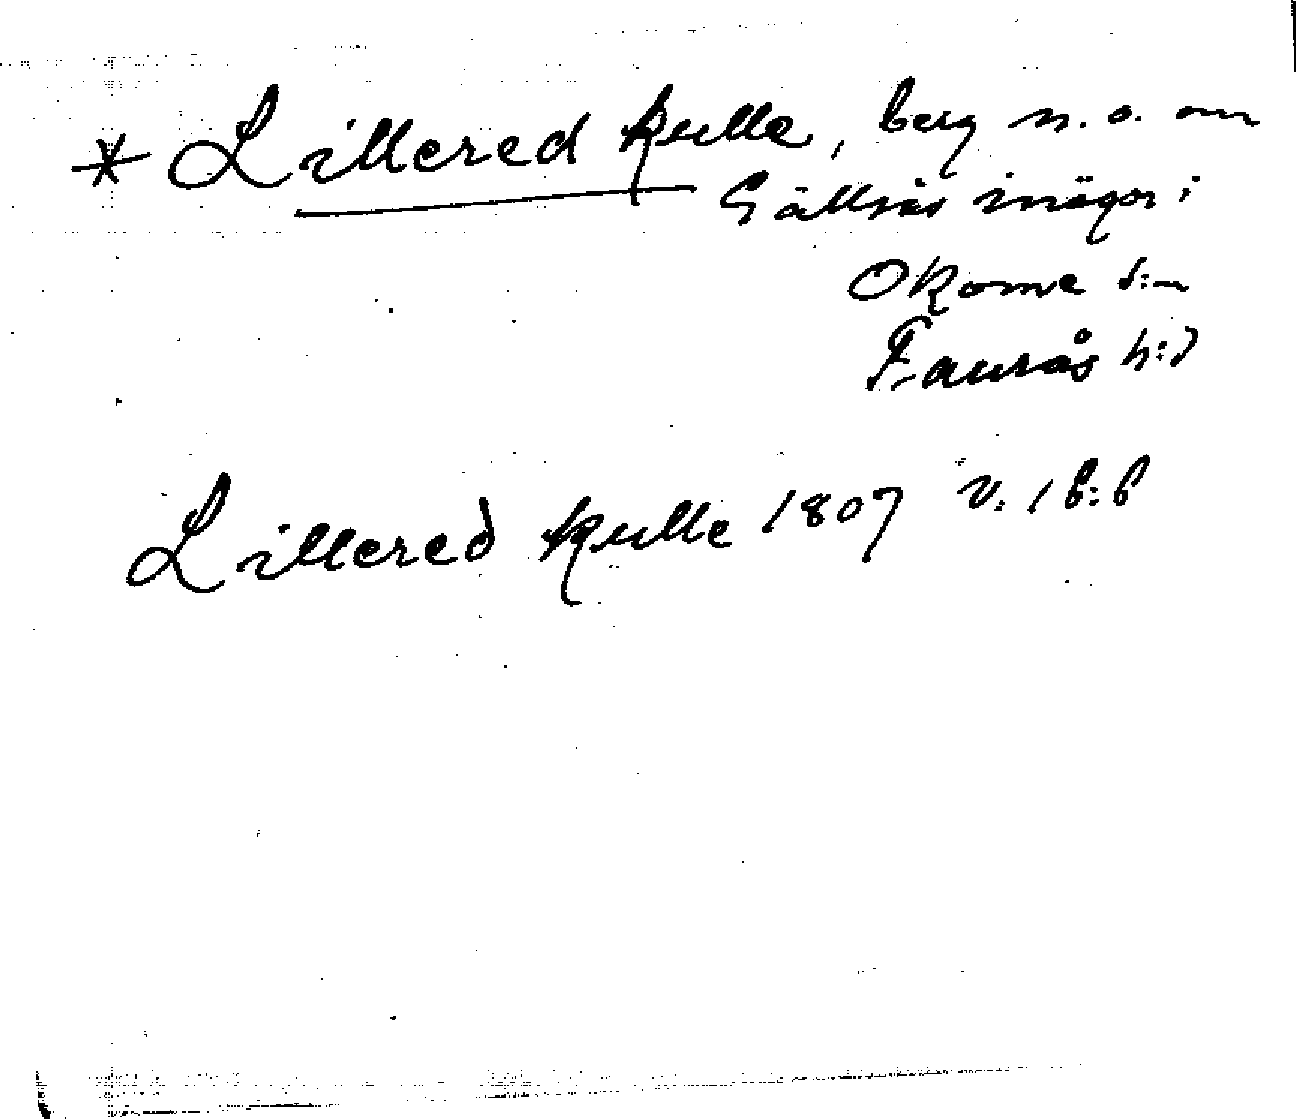 * Lillered kulle, berg n.o. om
Gällnäs inägor i
Okome s:n
Faurås h:d
Lillered kulle 1807 V: 16:6